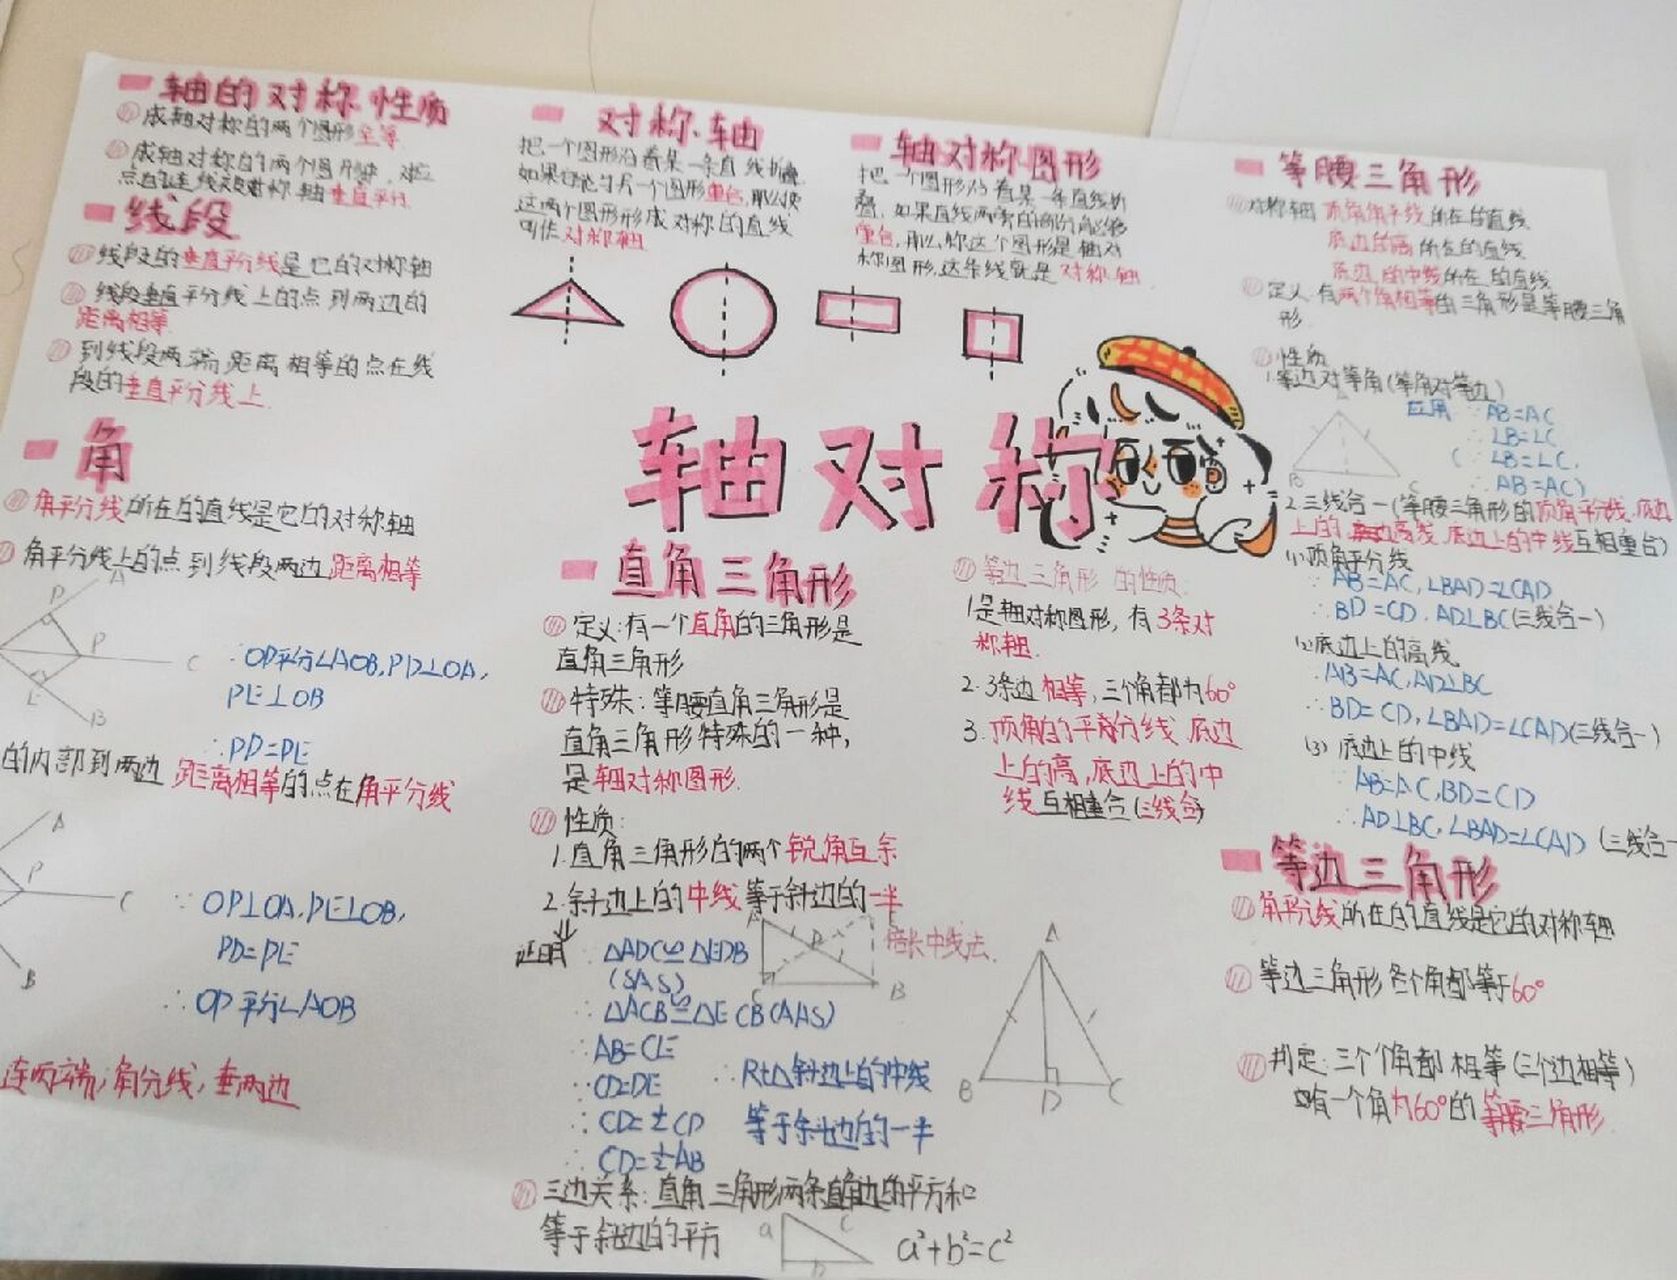 轴的对称性质
成轴对称的两个图形全等
成轴对称的两个图形中，对应
点的连线被对称轴垂直平分
线段
线段的垂直平分线是它的对称轴
线段垂直平分线上的点到两边的
距离相等
到线段两端距离相等的点在线
段的垂直平分线上
角
角平分线所在的直线是它的对称轴
角平分线上的点到线段两边距离相等
A
D
P
C
E
B
∵OP平分∠AOB,PD⊥OA,
PE⊥OB
∴PD=PE
的内部到两边距离相等的点在角平分线
A
P
C
B
∵OP⊥OA,PE⊥OB,
PD=PE
∴OP平分∠AOB
连两端,角分线,垂两边
对称轴
把一个图形沿着某一条直线折叠
如果它能与另一个图形重合,那么使
这两个图形形成对称的直线
叫作对称轴
轴对称图形
把一个图形沿着某一条直线折
叠,如果直线两旁的部分能够
重合,那么称这个图形是轴对
称图形,这条线就是对称轴
轴对称
直角三角形
定义:有一个直角的三角形是
直角三角形
特殊:等腰直角三角形是
直角三角形特殊的一种,
是轴对称图形.
性质:
1.直角三角形的两个锐角互余
2.斜边上的中线等于斜边的一半
证明
∵△ADC≌△EDB
(SAS)
∴△ACB≌△ECB(AAS)
∴AB=CE
∵CD=DE
∴CD=½CD
∴CD=½AB
A
D
E
C
B
倍长中线法.
∴Rt△斜边上的中线
等于斜边的一半
三边关系:直角三角形两条直角边的平方和
等于斜边的平方
a
c
b
a²+b²=c²
等边三角形的性质
1是轴对称图形,有3条对
称轴.
2.3条边相等,三个角都为60°
3.顶角的平分线 底边
上的高,底边上的中
线互相重合(三线合一)
A
B
D
C
等腰三角形
对称轴 顶角角平线所在的直线
底边的高所在的直线
底边的中线所在的直线
定义:有两个角相等的三角形是等腰三角
形
性质
1.等边对等角(等角对等边)
A
B
C
应用 ∵AB=AC
∴∠B=∠C
(∵∠B=∠C,
∴AB=AC)
2.三线合一(等腰三角形的顶角平分线.底边
上的高线.底边上的中线互相重合)
(1)顶角平分线
∵AB=AC,∠BAD=∠CAD
∴BD=CD.AD⊥BC(三线合一)
(2)底边上的高线
∵AB=AC,AD⊥BC
∴BD=CD,∠BAD=∠CAD(三线合一)
(3)底边上的中线
∵AB=AC,BD=CD
∴AD⊥BC,∠BAD=∠CAD(三线合一
等边三角形
角平分线所在的直线是它的对称轴
等边三角形各个角都等于60°
判定:三个角都相等(三个边相等)
有一个角为60°的等腰三角形